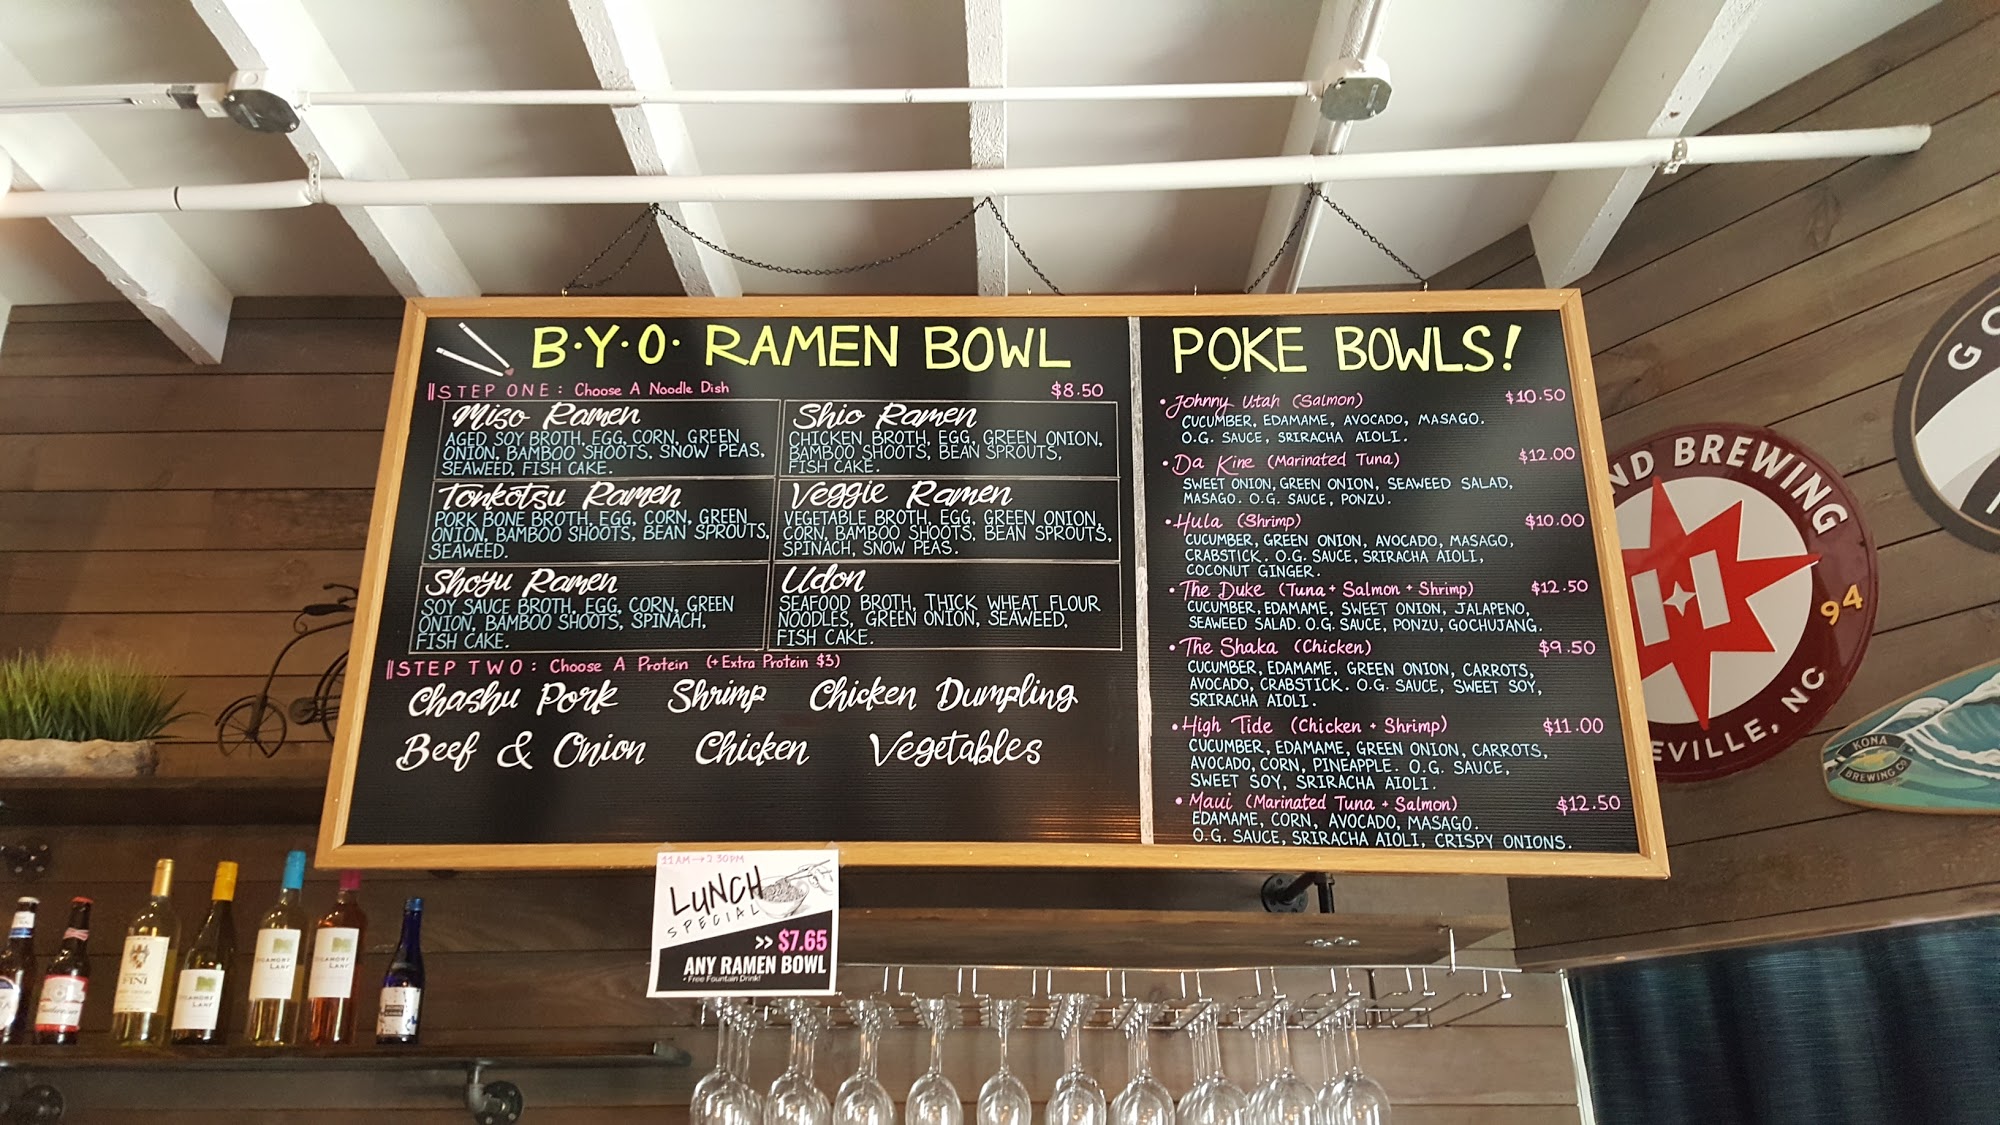 B.Y.O. RAMEN BOWL
STEP ONE: Choose A Noodle Dish $8.50
Miso Ramen
AGED SOY BROTH, EGG, CORN, GREEN
ONION, BAMBOO SHOOTS, SNOW PEAS,
SEAWEED, FISH CAKE.
Shio Ramen
CHICKEN BROTH, EGG, GREEN ONION,
BAMBOO SHOOTS, BEAN SPROUTS,
FISH CAKE.
Tonkotsu Ramen
PORK BONE BROTH, EGG, CORN, GREEN
ONION, BAMBOO SHOOTS, BEAN SPROUTS,
SEAWEED.
Veggie Ramen
VEGETABLE BROTH, EGG, GREEN ONION,
CORN, BAMBOO SHOOTS, BEAN SPROUTS,
SPINACH, SNOW PEAS.
Shoyu Ramen
SOY SAUCE BROTH, EGG, CORN, GREEN
ONION, BAMBOO SHOOTS, SPINACH,
FISH CAKE.
Udon
SEAFOOD BROTH, THICK WHEAT FLOUR
NOODLES, GREEN ONION, SEAWEED,
FISH CAKE.
STEP TWO: Choose A Protein (+Extra Protein $3)
Chashu Pork Shrimp Chicken Dumpling
Beef & Onion Chicken Vegetables
POKE BOWLS!
• Johnny Utah (Salmon) $10.50
CUCUMBER, EDAMAME, AVOCADO, MASAGO.
O.G. SAUCE, SRIRACHA AIOLI.
• Da Kine (Marinated Tuna) $12.00
SWEET ONION, GREEN ONION, SEAWEED SALAD,
MASAGO. O.G. SAUCE, PONZU.
• Hula (Shrimp) $10.00
CUCUMBER, GREEN ONION, AVOCADO, MASAGO,
CRABSTICK. O.G. SAUCE, SRIRACHA AIOLI,
COCONUT GINGER.
• The Duke (Tuna + Salmon + Shrimp) $12.50
CUCUMBER, EDAMAME, SWEET ONION, JALAPENO,
SEAWEED SALAD. O.G. SAUCE, PONZU, GOCHUJANG.
• The Shaka (Chicken) $9.50
CUCUMBER, EDAMAME, GREEN ONION, CARROTS,
AVOCADO, CRABSTICK. O.G. SAUCE, SWEET SOY,
SRIRACHA AIOLI.
• High Tide (Chicken + Shrimp) $11.00
CUCUMBER, EDAMAME, GREEN ONION, CARROTS,
AVOCADO, CORN, PINEAPPLE. O.G. SAUCE,
SWEET SOY, SRIRACHA AIOLI.
• Maui (Marinated Tuna + Salmon) $12.50
EDAMAME, CORN, AVOCADO, MASAGO.
O.G. SAUCE, SRIRACHA AIOLI, CRISPY ONIONS.
11AM→2:30PM
LUNCH
SPECIAL
>> $7.65
ANY RAMEN BOWL
+ Free Fountain Drink!
ND BREWING
H
94
EVILLE, NC
GO
KONA
BREWING CO
FINI
Budweiser